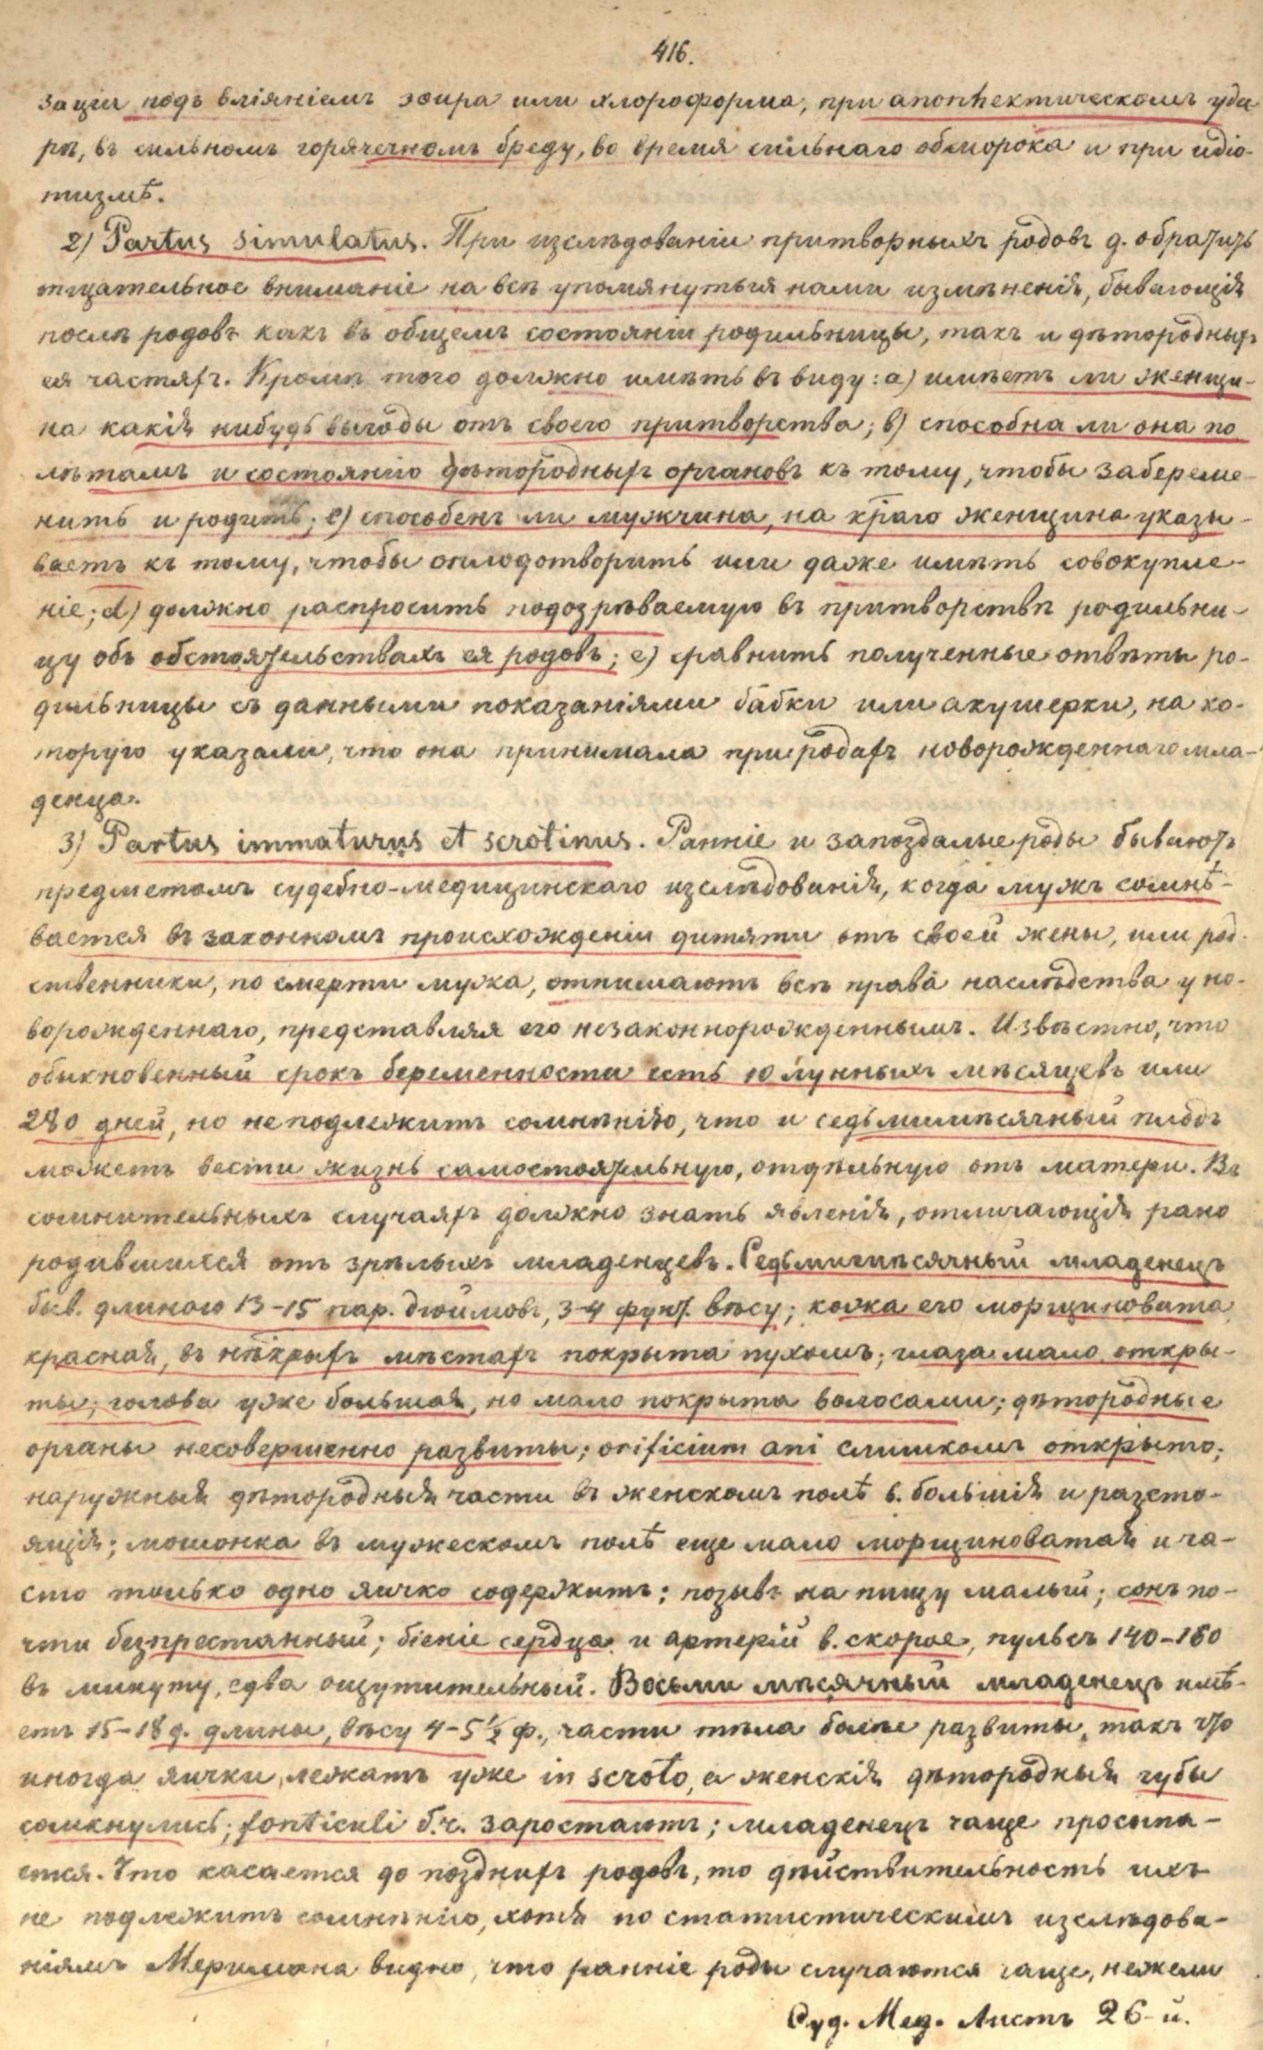 416.
заціи подъ вліяніемъ эѳира или хлороформа, при апоплектическомъ уда-
рѣ, въ сильномъ горячечномъ бреду, во время сильнаго обморока и при идіо-
тизмѣ.
2) Partus simulatus. При изслѣдованіи притворныхъ родовъ д. обратить
тщательное вниманіе на всѣ упомянутыя нами измѣненія, бывающія
послѣ родовъ какъ въ общемъ состояніи родильницы, такъ и дѣтородныхъ
ея частяхъ. Кромѣ того должно имѣть въ виду: a) имѣетъ ли женщи-
на какія нибудь выгоды отъ своего притворства; b) способна ли она по
лѣтамъ и состоянію дѣтородныхъ органовъ къ тому, чтобы забереме-
нить и родить; c) способенъ ли мужчина, на края женщина указы-
ваетъ къ тому, чтобы оплодотворить или даже имѣть совокупле-
ніе; d) должно распросить подозрѣваемую въ притворствѣ родильни-
цу объ обстоятельствахъ ея родовъ; e) сравнить полученные отвѣты ро-
дильницы съ данными показаніями бабки или акушерки, на ко-
торую указали, что она принимала при родахъ новорожденнаго мла-
денца.
3) Partus immaturus et scrotinus. Ранніе и запоздалые роды бываютъ
предметомъ судебно-медицинскаго изслѣдованія, когда мужъ сомнѣ-
вается въ законномъ происхожденіи дитяти отъ своей жены, или род-
ственники, по смерти мужа, отнимаютъ всѣ права наслѣдства у но-
ворожденнаго, представляя его незаконнорожденнымъ. Извѣстно, что
обыкновенный срокъ беременности есть 10 лунныхъ мѣсяцевъ или
280 дней, но не подлежитъ сомнѣнію, что и седьмимѣсячный плодъ
можетъ вести жизнь самостоятельную, отдѣльную отъ матери. Въ
сомнительныхъ случаяхъ должно знать явленія, отличающія рано
родившихся отъ зрѣлыхъ младенцевъ. Седьмимѣсячный младенецъ
быв. длиною 13-15 пар. дюймовъ, 3-4 фунт. вѣсу; кожа его морщиновата,
красная, въ нѣкрыхъ мѣстахъ покрыта пухомъ; глаза мало откры-
ты; голова уже большая, но мало покрыта волосами; дѣтородные
органы несовершенно развиты; orificium ani слишкомъ открыто;
наружныя дѣтородныя части въ женскомъ полѣ б. большія и разсто-
ящія; мошонка въ мужескомъ полѣ еще мало морщиноватая и ча-
сто только одно яичко содержитъ; позывъ на пищу малый; сонъ по-
чти безпрестанный; біеніе сердца и артерій в. скорое, пульсъ 140-160
въ минуту, едва ощутительный. Восьми мѣсячный младенецъ имѣ-
етъ 15-18 д. длины, вѣсу 4-5 1/2 ф., части тѣла болѣе развиты, такъ что
иногда яички лежатъ уже in scroto, а женскія дѣтородныя губы
сомкнулись; fonticuli б.ч. заростаютъ; младенецъ чаще просыпа-
ется. Что касается до позднихъ родовъ, то дѣйствительность ихъ
не подлежитъ сомнѣнію, хотя по статистическимъ изслѣдова-
ніямъ Меримана видно, что ранніе роды случаются чаще, нежели
Суд. Мед. Листъ 26-й.